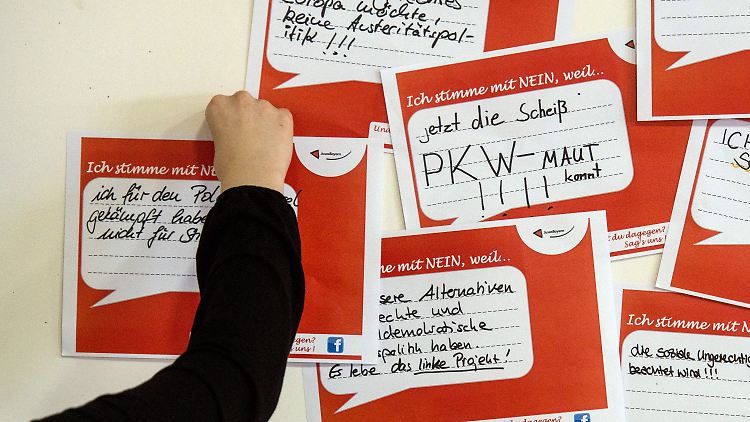 Europa möchte,
keine Austeritätspol-
itik!!!
Ich stimme mit NEIN, weil...
jetzt die Scheiß
PKW-MAUT
!!!! kommt
du dagegen?
Sag's uns!
Ich stimme mit NE
ich für den Pol
gekämpft habe
nicht für
gen?
s!
me mit NEIN, weil...
sere Alternativen
echte und
demokratische
spolitik haben.
Es lebe das linke Projekt!
dagegen?
ICH
Ich stimme mit NEIN
die soziale Ungerechtig
beachtet wird!!!